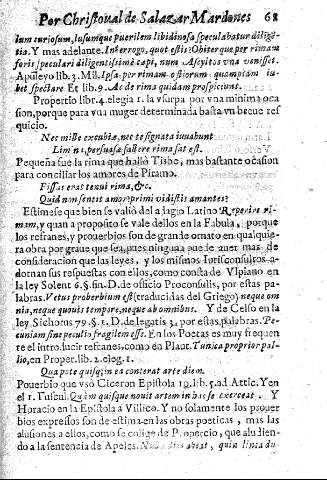 Por Christoual de Salazar Mardones 68
lum curiosum, lusumque puerilem libidinosa speculabatur diligẽ-
tia. Y mas adelante. Interrogo, quot estis? Obiter que per rimam
foris speculari diligentissimè capi, num Ascyltos vna venisset.
Apuleyo lib. 3. Mil. Ipsa per rimam ostiorum quampiam iu-
bet spectare. Et lib. 9. Ac de rima quidam prospiciunt.
Propertio libr. 4. elegia 1. la vsurpa por vna minima oca
sion, porque para vna muger determinada basta vn breue res
quicio.
Nec mille excubiæ, nec te signata iuuabunt
Limina, persuasæ fallere rima sat est.
Pequeña fue la rima que hallò Tisbe, mas bastante ocasion
para conciliar los amores de Piramo.
Fissus erat tenui rima, &c.
Quid non sentit amor? primi vidistis amantes?
Estimese que bien se valiò del adagio Latino Reperire ri-
mam, y quan a proposito se vale dellos en la Fabula, porque
los refranes, y prouerbios son de grande ornato en qualquie-
ra obra por graue que sea, pues ninguna que le auer mas de
consideracion que las leyes, y los mismos Iurisconsultos a-
dornan sus respuestas con ellos, como consta de Vlpiano en
la ley Solent 6. §. fin. D. de officio Proconsulis, por estas pa-
labras. Vetus prouerbium est (traducidas del Griego) neque om
nia, neque quouis tempore, neque ab omnibus. Y de Celso en la
ley Sichorus 79. §. 1. D. de legatis 3. por estas palabras. Pe-
cuniam sine peculio fragilem esse. En los Poetas es muy frequen
te el introducir refranes, como en Plaut. Tunica proprior pal-
lio, en Proper. lib. 2. eleg. 1.
Qua pote quisq; in ea conterat arte diem.
Prouerbio que vsò Ciceron Epistola 10. lib. 5. ad Attic. Y en
el 1. Tuscul. Quam quisque nouit artem in hac se exerceat. Y
Horacio en la Epistola à Villico. Y no solamente los prouer
bios expressos son de estima en las obras poeticas, mas las
alusiones a ellos, como se colige de Propercio, que aludien-
do a la sentencia de Apeles. Nulla dies abeat, quin linea du-